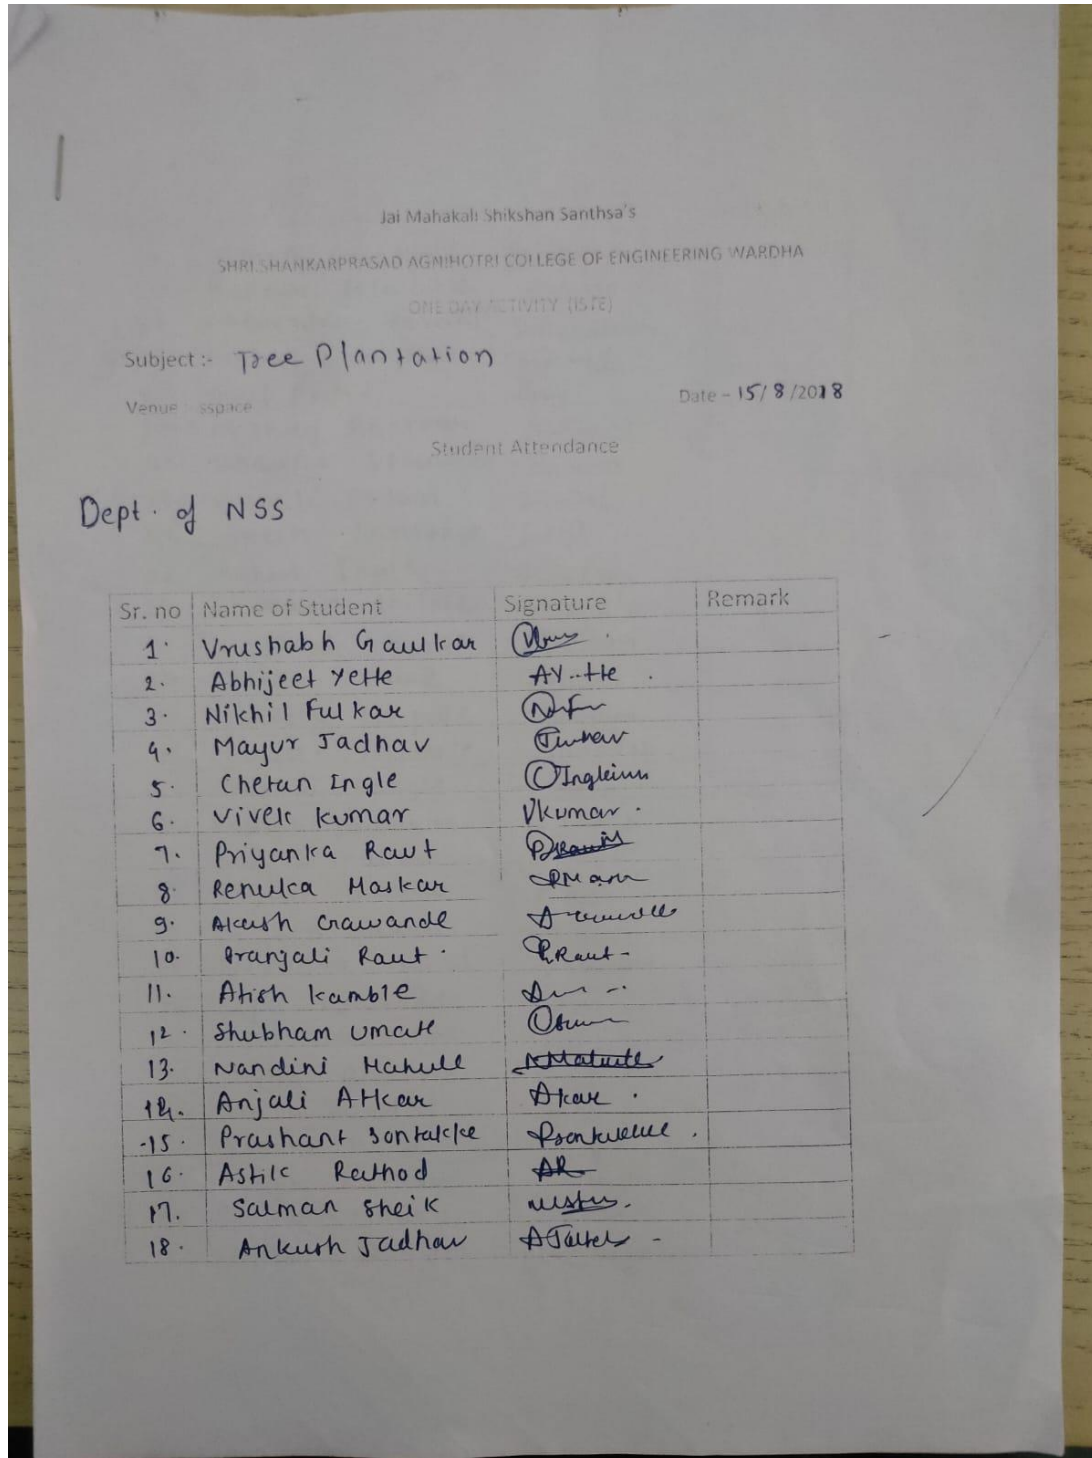 Jai Mahakali Shikshan Santhsa's
SHRI.SHANKARPRASAD AGNIHOTRI COLLEGE OF ENGINEERING WARDHA
ONE DAY ACTIVITY (ISTE)
Subject :- Tree Plantation
Venue : sspace Date - 15/8/2018
Student Attendance
Dept. of NSS
Sr. no Name of Student Signature Remark
1. Vrushabh Gaulkar
2. Abhijeet Yette AY..tte
3. Nikhil Fulkar
4. Mayur Jadhav
5. Chetan Ingle
6. Vivek Kumar VKumar
7. Priyanka Raut
8. Renuka Maskar
9. Akash Gawande
10. Pranjali Raut PRaut
11. Atish Kamble
12. Shubham Umate
13. Nandini Mahule
14. Anjali Atkar Akar
15. Prashant Sontakke
16. Astik Rathod AR
17. Salman Sheik
18. Ankush Jadhav